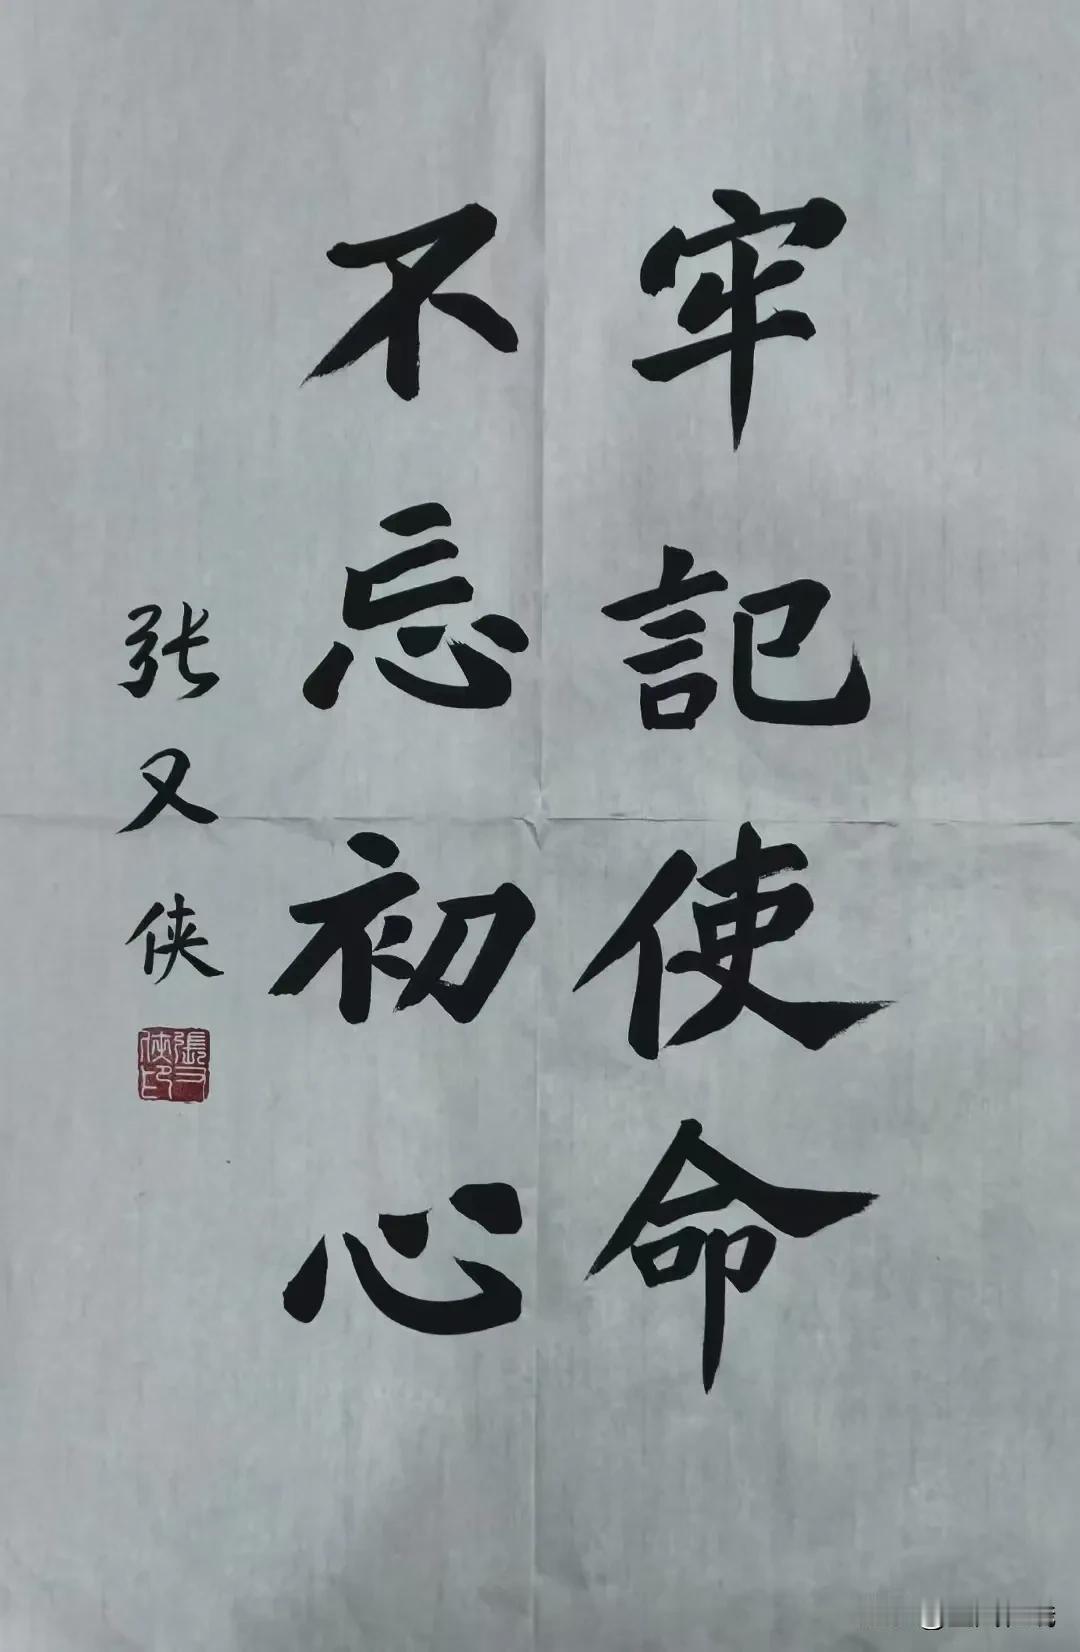 牢記使命
不忘初心
张又侠
張又俠印